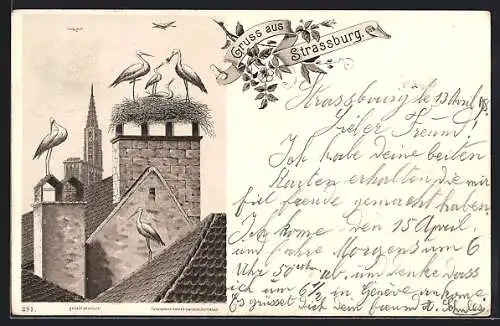 Gruss aus
Strassburg.
Strassbourg le 13 April 98.
Lieber Freund!
Ich habe deine beiten
Karten erhalten die mir
fiel freude gemacht haben.
Ich kome den 15 April.
um fahre Morgens um 6
Uhr 50 ab, um denke dass
ich um 6 1/2 in Genève ankome
Es grüsset dich dein freund A. Jules.
291.